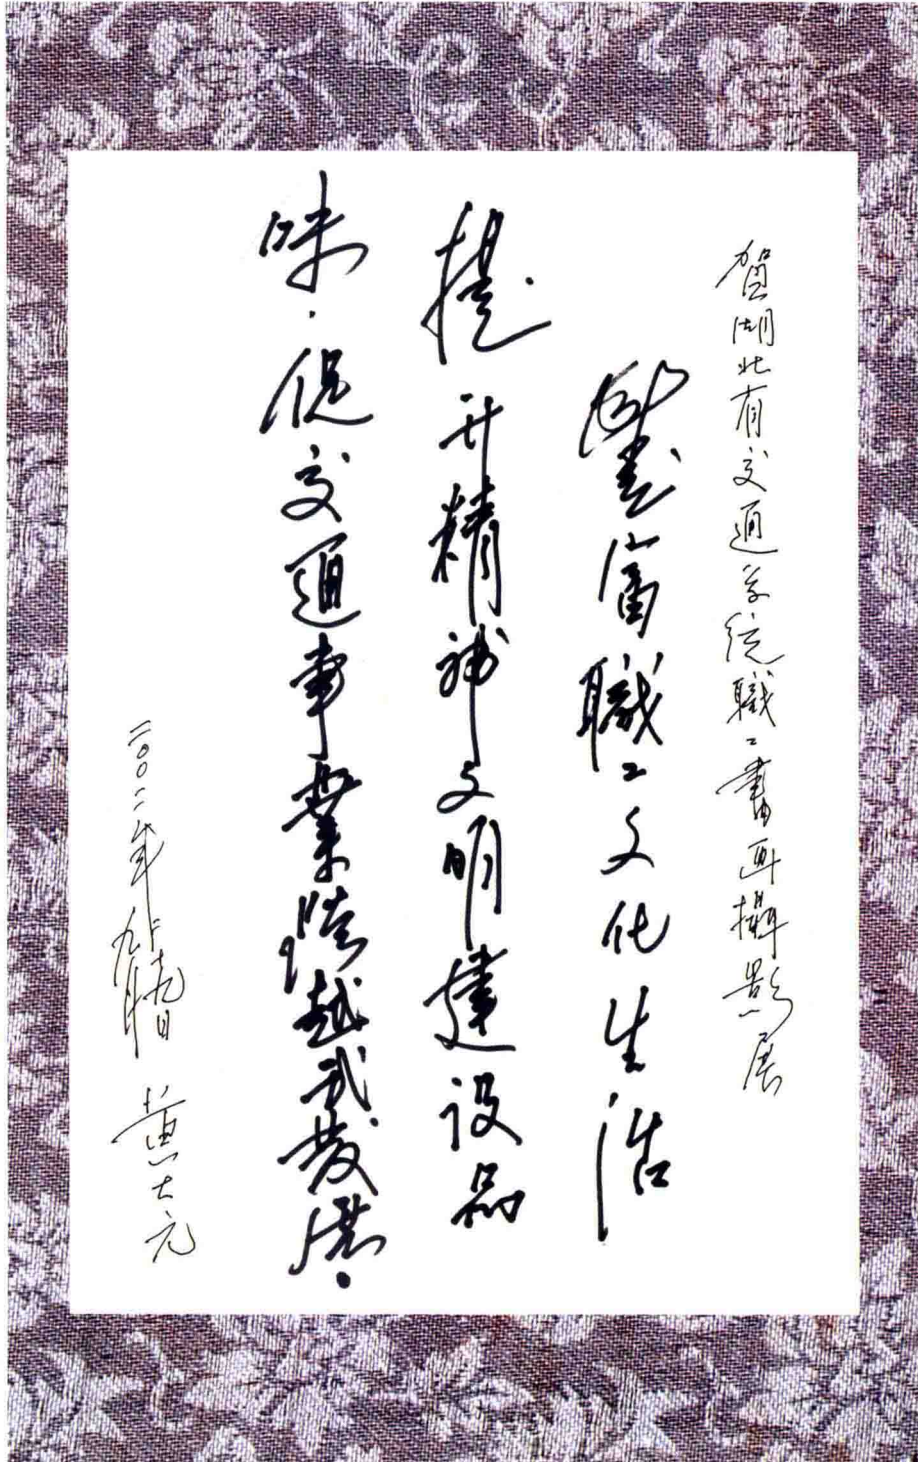 贺湖北省交通系统職工書画攝影展
豐富職工文化生活
提升精神文明建设品
味·促交通事業跨越式發展·
二00二年九月十九日
黄大元